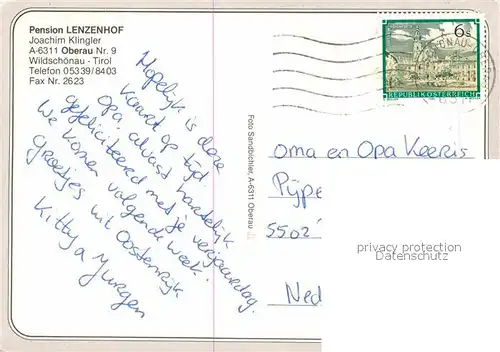 Pension LENZENHOF
Joachim Klingler
A-6311 Oberau Nr. 9
Wildschönau - Tirol
Telefon 05339/8403
Fax Nr. 2623
Hopelijk is deze
kaart op tijd.
Opa alvast hartelijk
gefeliciteerd met je verjaardag.
We komen volgende week.
Groetjes uit Oostenrijk
Kitty a Jurgen
Foto Sandbichler, A-6311 Oberau
6s
REPUBLIK ÖSTERREICH
ÖNAU-
Oma en Opa Keeris
Pijpe
5502
Ned
privacy protection
Datenschutz